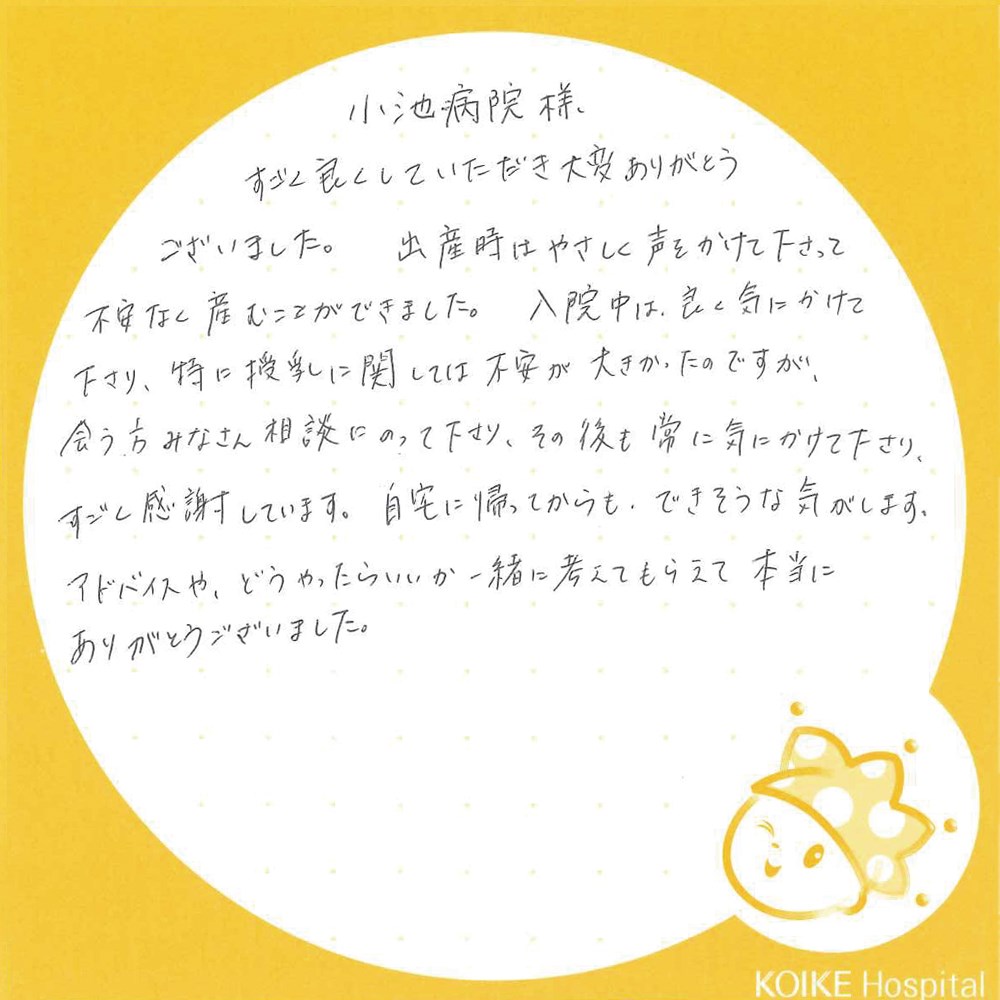 小池病院様、
すごく良くしていただき大変ありがとう
ございました。 出産時はやさしく声をかけて下さって
不安なく産むことができました。 入院中は、良く気にかけて
下さり、特に授乳に関しては不安が大きかったのですが、
会う方みなさん相談にのって下さり、その後も常に気にかけて下さり、
すごく感謝しています。自宅に帰ってからも、できそうな気がします。
アドバイスや、どうやったらいいか一緒に考えてもらえて本当に
ありがとうございました。
KOIKE Hospital